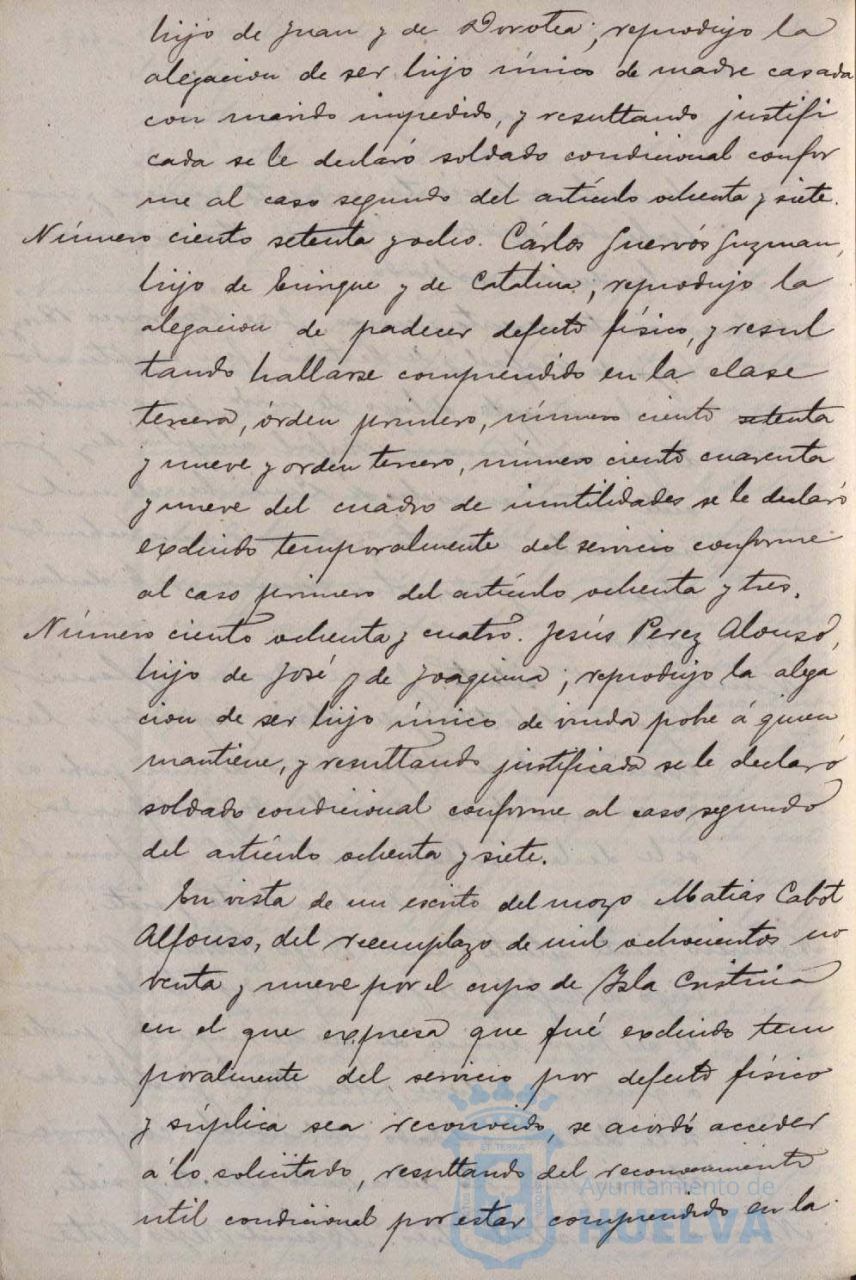 hijo de Juan y de Dorotea; reprodujo la
alegacion de ser hijo único de madre casada
con marido impedido, y resultando justifi
cada se le declaró soldado condicional confor
me al caso segundo del artículo ochenta y siete.
Número ciento setenta y ocho. Cárlos Guervós Guzman,
hijo de Enrique y de Catalina; reprodujo la
alegacion de padecer defecto físico, y resul
tando hallarse comprendido en la clase
tercera, órden primero, número ciento setenta
y nueve y orden tercero, número ciento cuarenta
y nueve del cuadro de inutilidades se le declaró
excluido temporalmente del servicio conforme
al caso primero del artículo ochenta y tres.
Número ciento ochenta y cuatro. Jesús Perez Alonso,
hijo de José y de Joaquina; reprodujo la alega
cion de ser hijo único de viuda pobre á quien
mantiene, y resultando justificada se le declaró
soldado condicional conforme al caso segundo
del artículo ochenta y siete.
En vista de un escrito del mozo Matias Cabot
Alfonso, del reemplazo de mil ochocientos no
venta y nueve por el cupo de Isla Cristina
en el que expresa que fué excluido tem
poralmente del servicio por defecto físico
y súplica sea reconocido, se acordó acceder
á lo solicitado, resultando del reconocimiento
util condicional por estar comprendido en la
Ayuntamiento de
HUELVA